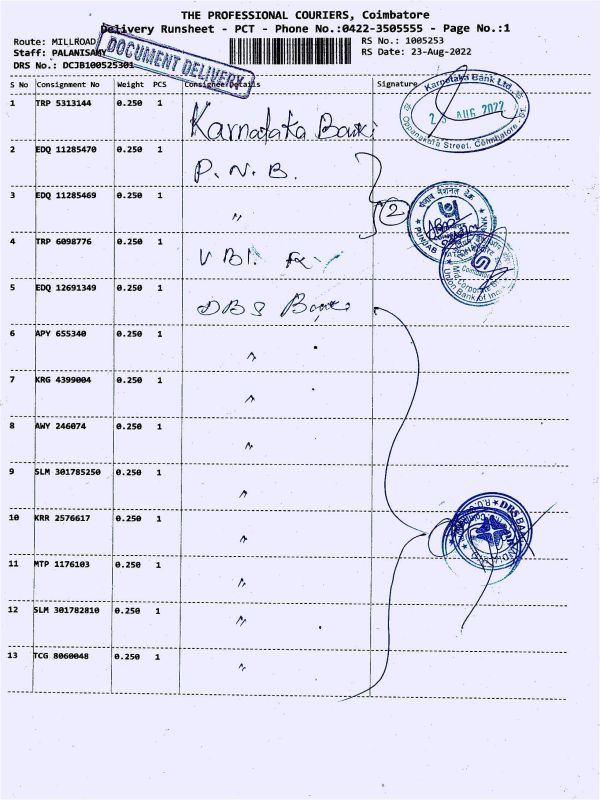 THE PROFESSIONAL COURIERS, Coimbatore
Delivery Runsheet - PCT - Phone No.:0422-3505555 - Page No.:1
Route: MILLROAD RS No.: 1005253
Staff: PALANISAMY RS Date: 23-Aug-2022
DRS No.: DCJB100525301
DOCUMENT DELIVERY
S No Consignment No Weight PCS Consignee Details Signature
1 TRP 5313144 0.250 1 Karnataka Bank
Karnataka Bank Ltd.,
23 AUG 2022
Oppanakara Street, Coimbatore - 01.
2 EDQ 11285470 0.250 1 P.N.B.
3 EDQ 11285469 0.250 1 "
2
पंजाब नैशनल बैंक
PUNJAB BANK
4 TRP 6098776 0.250 1 UBI.
Mid Corporate
Union Bank of India
5 EDQ 12691349 0.250 1 DBS Bank
6 APY 655340 0.250 1 "
7 KRG 4399004 0.250 1 "
8 AWY 246074 0.250 1 "
9 SLM 301785250 0.250 1 "
10 KRR 2576617 0.250 1 "
DBS BANK
11 MTP 1176103 0.250 1 "
12 SLM 301782810 0.250 1 "
13 TCG 8060048 0.250 1 "